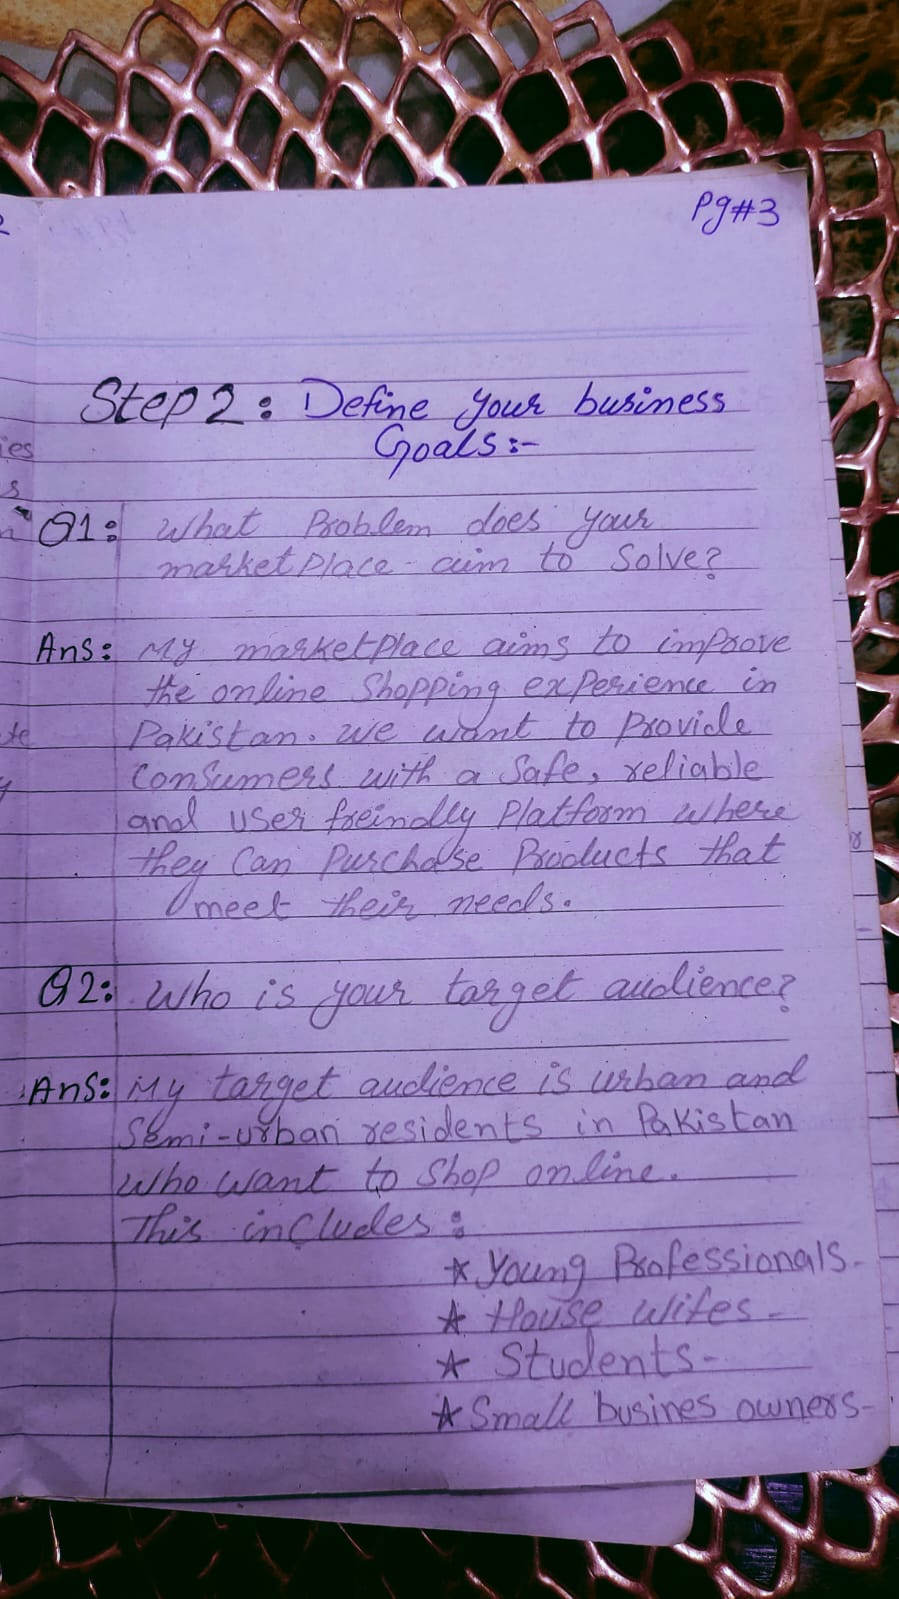 Pg#3
Step 2: Define your business
Goals:-
Q1: What Problem does your
marketplace aim to Solve?
Ans: My marketplace aims to improve
the online Shopping experience in
Pakistan. We want to Provide
Consumers with a Safe, reliable
and user freindly Platform where
they Can Purchase Products that
meet their needs.
Q2: Who is your target audience?
Ans: My target audience is urban and
Semi-urban residents in Pakistan
Who want to Shop online.
This includes:
★ Young Professionals-
★ House Wifes-
★ Students-
★ Small busines owners-